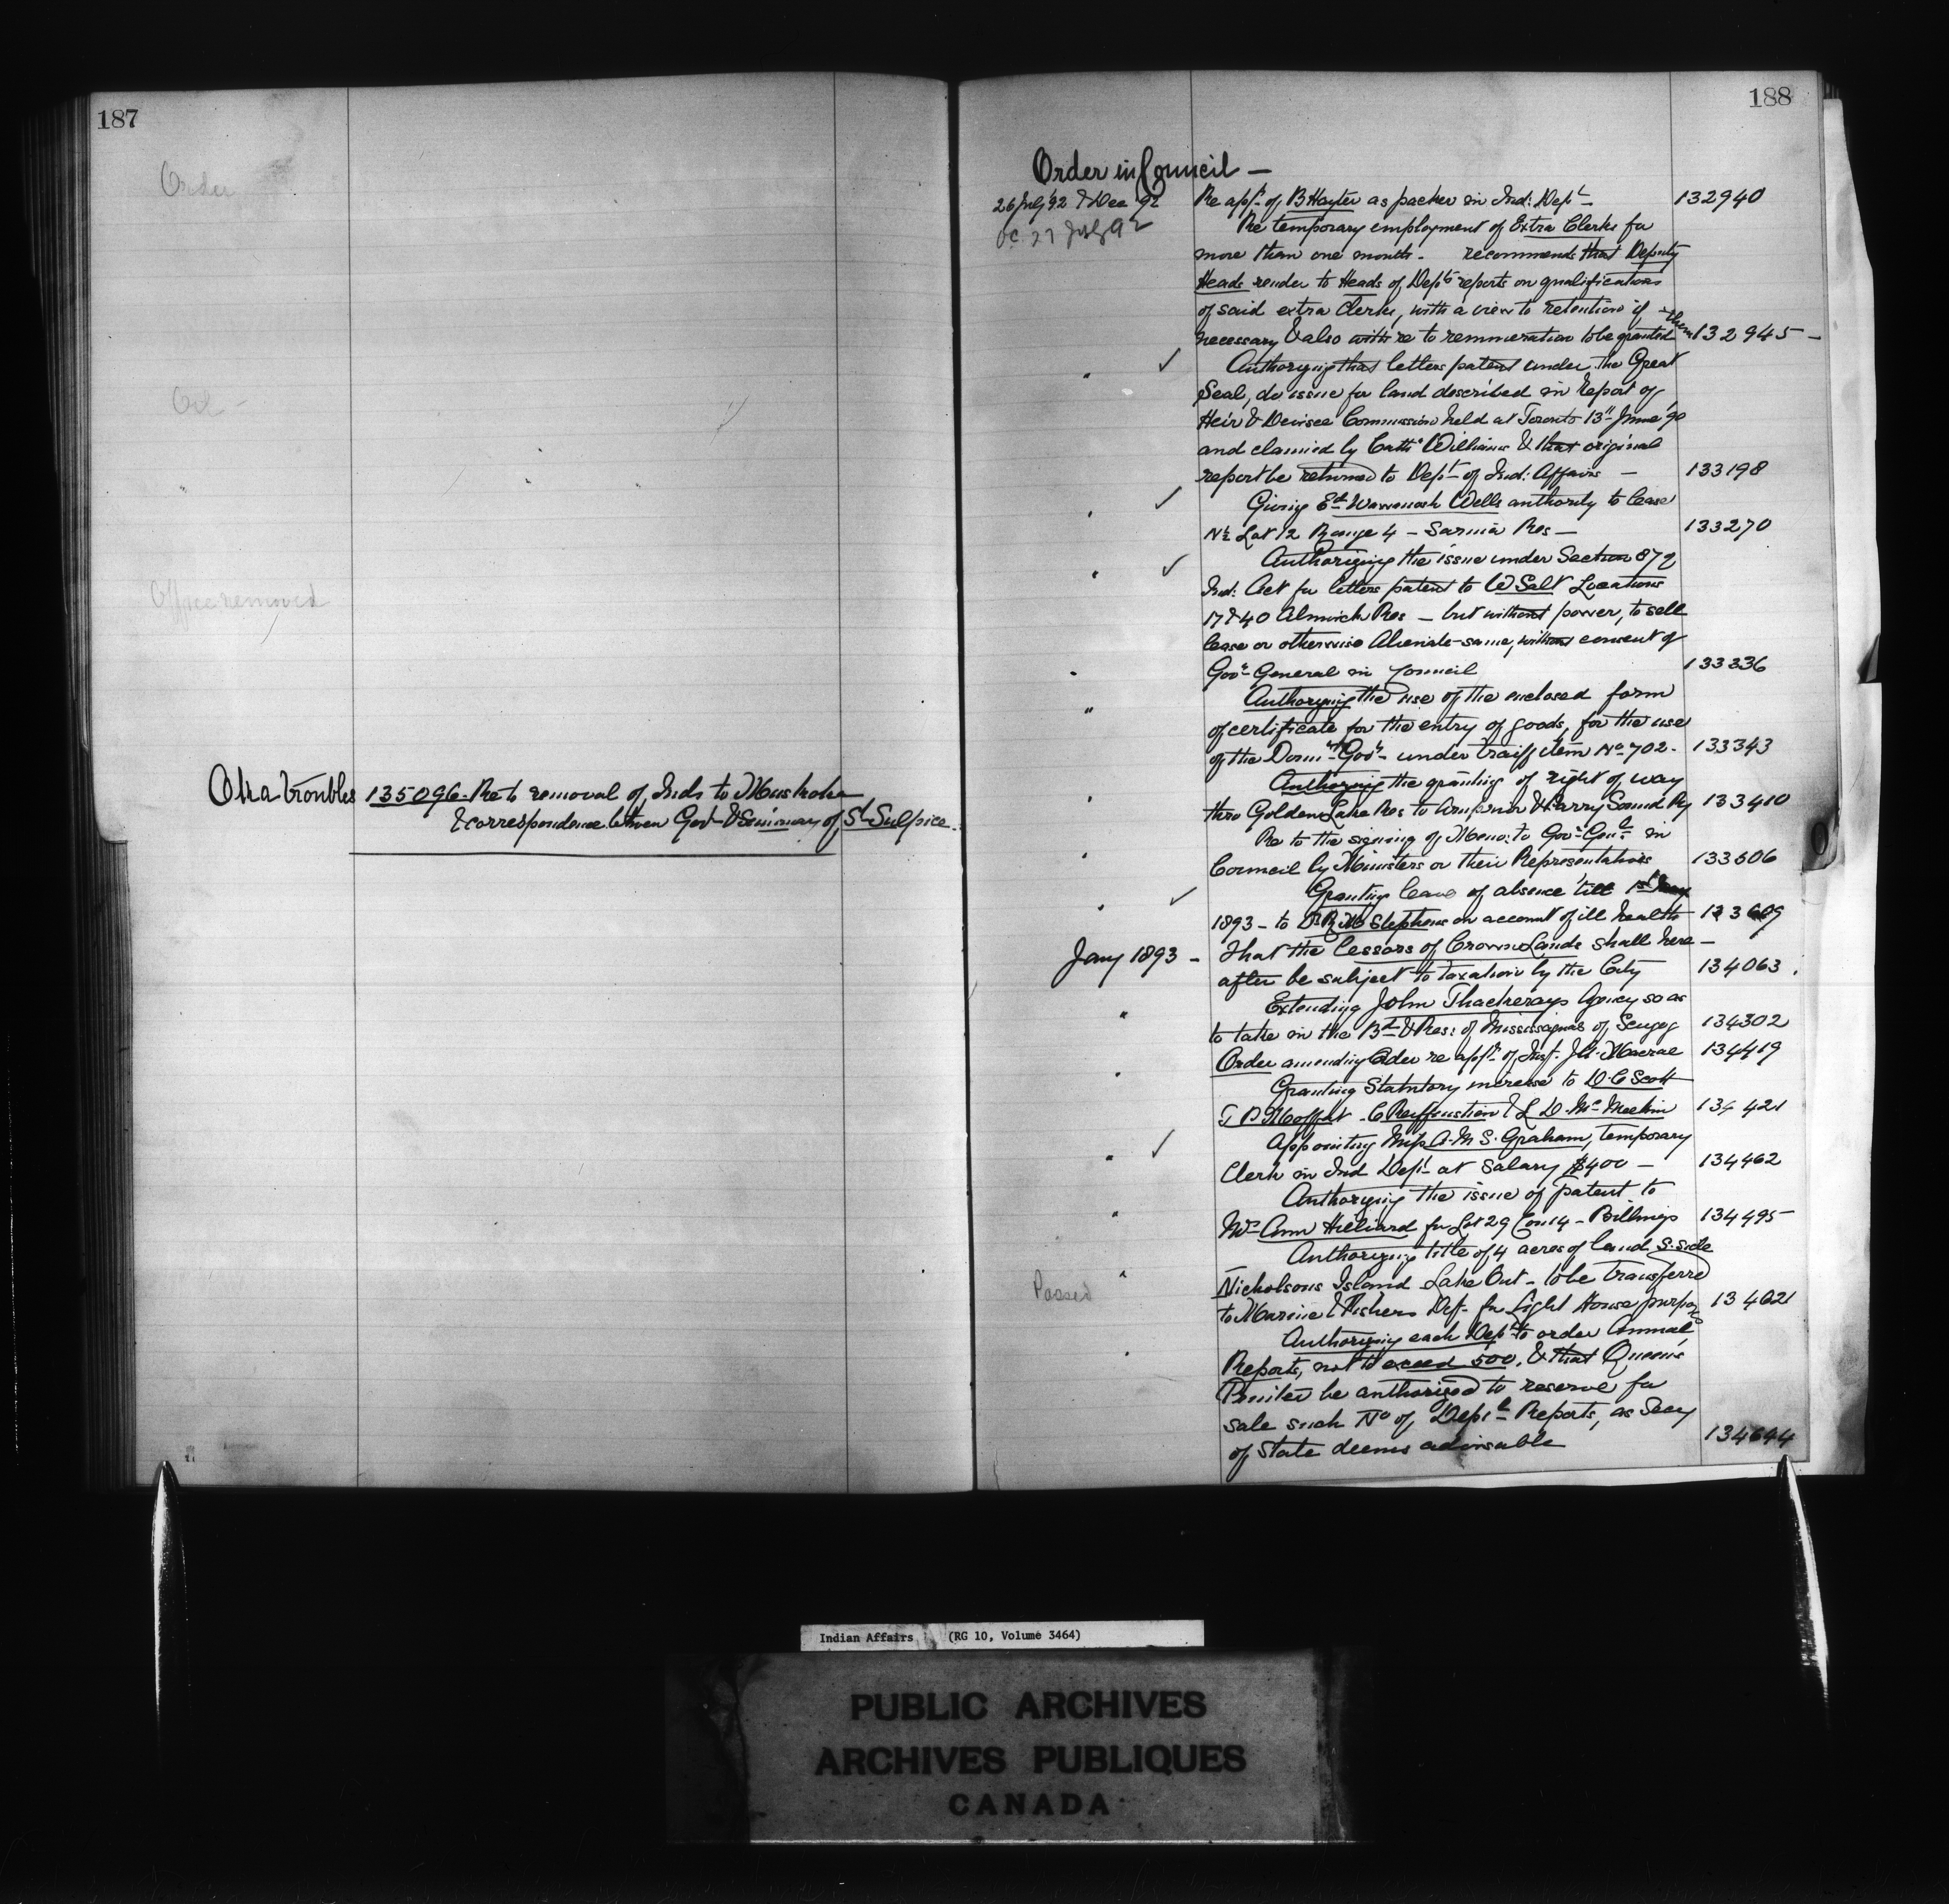 187
Order
Oil -
Office removed
Oka troubles 135096. Re to removal of Inds to Muskoka
& correspondence between Govt & Seminary of St Sulpice.
188
Order in Council —
26 July '92 & Dec '92 Re appt. of B Hayter as packer in Ind: Dept 132940
OC. 27 July 92 Re temporary employment of Extra Clerks for
more than one month - recommends that Deputy
Heads render to Heads of Depts reports on qualifications
of said extra Clerks, with a view to retention if
necessary & also with re to remuneration to be granted them 132945 -
" ✓ Authorizing that letters patent under the Great
Seal, do issue for land described in Report of
Heir & Devisee Commission held at Toronto 13th June '90
and claimed by Cathe Williams & that original
report be returned to Dept of Ind: Affairs — 133198
" ✓ Giving Ed Wawanosh Wells authority to lease
N½ Lot 12 Range 4 - Sarnia Res — 133270
" ✓ Authorizing the issue under Section 87 of
Ind: Act for letters patent to W Salt Locations
17 & 40 Alnwick Res - but without power, to sell
lease or otherwise Alienate same, without consent of
" Govr General in Council 133336
" Authorizing the use of the enclosed form
of certificate for the entry of goods, for the use
of the Domn Govt - under traiff item No 702 - 133343
" Authorizing the granting of right of way
thro Golden Lake Res to Arnprior & Parry Sound Ry 133410
Re to the signing of Memo: to Govr Genl in
" Council by Ministers or their Representatives 133506
" ✓ Granting leave of absence till 1st Jany
1893 - to Dr R M Stephens on account of ill health 133609
Jany 1893 - That the Lessors of Crown Lands shall here -
after be subject to taxation by the City 134063.
" Extending John Thackerays Agency so as
to take in the Bd & Res: of Mississaguas of Scugog 134302
Order amending Order re appt of Insp. J A Macrae 134419
" Granting Statutory increase to D. C Scott
T P Moffat - C Reiffenstien & L D. McMeekin 134421
" ✓ Appointing Miss A. M S. Graham, temporary
Clerk in Ind Dept at Salary $400 — 134462
" Authorizing the issue of patent to
Mrs Ann Hilliard for Lot 29 Con 14 - Billings 134495
Authorizing title of 4 acres of land S. side
Passed " Nicholsons Island Lake Ont - to be transferred
to Marine & Fishers Dept. for Light House purpos 134621
" Authorizing each Dept to order Annual
Reports, not to exceed 500. & that Queen's
Printer be authorized to reserve for
sale such No of, Deptl Reports, as Secy
of State deems advisable 134644
Indian Affairs (RG 10, Volume 3464)
PUBLIC ARCHIVES
ARCHIVES PUBLIQUES
CANADA